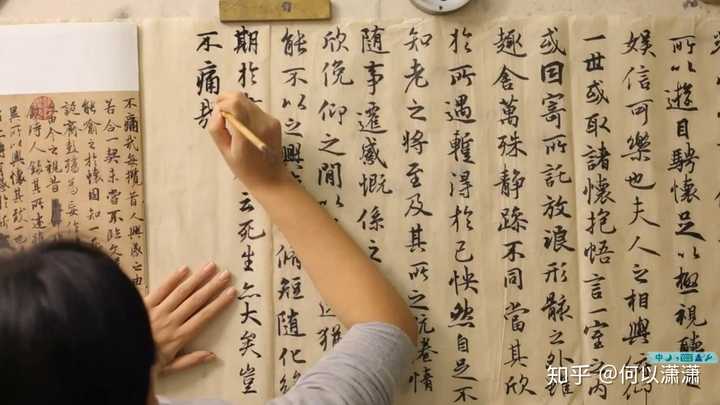 所以遊目騁懷足以極視聽
娛信可樂也夫人之相與俯仰
一世或取諸懷抱悟言一室之内
或因寄所託放浪形骸之外雖
趣舍萬殊静躁不同當其欣
於所遇暫得於己怏然自足不
知老之將至及其所之既惓情
隨事遷感慨係之
欣俛仰之間以猶
能不以之興脩短隨化終
期於云死生亦大矣豈
不痛
不痛哉每攬昔人興感之由
若合一契未嘗不臨文
能喻之於懷固知一
誕齊彭殤為妄作
今之視昔
時人錄其所述
異所以興懷其致一也
中
知乎 @何以潇潇